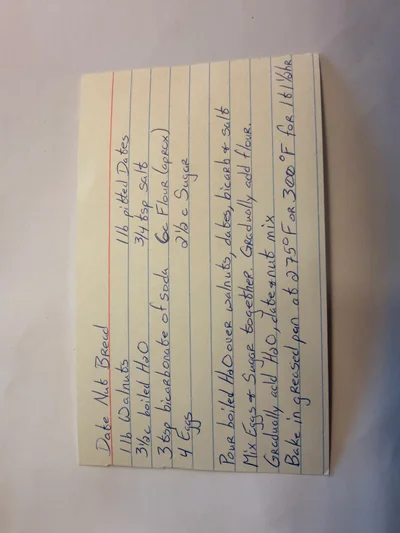 Date Nut Bread
1 lb Walnuts 1 lb pitted Dates
3 1/2 c boiled H2O 3/4 tsp salt
3 tsp bicarbonate of soda 6c Flour (aprox)
4 Eggs 2 1/2 c Sugar
Pour boiled H2O over walnuts, dates, bicarb & salt
Mix Eggs & Sugar together. Gradually add flour.
Gradually add H2O, date & nut mix
Bake in greased pan at 275°F or 300°F for 1 to 1 1/2 hr